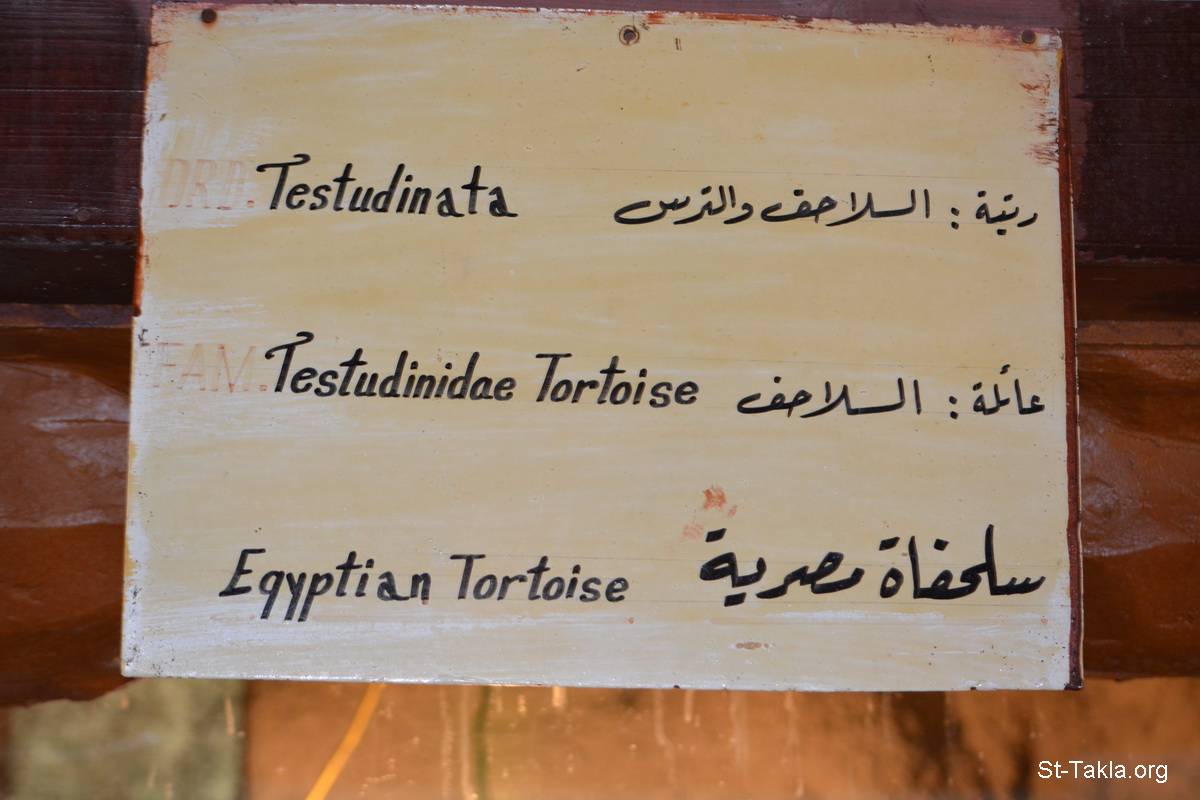 ORD. Testudinata رتبة : السلاحف والترس
FAM. Testudinidae Tortoise عائلة : السلاحف
Egyptian Tortoise سلحفاة مصرية
St-Takla.org